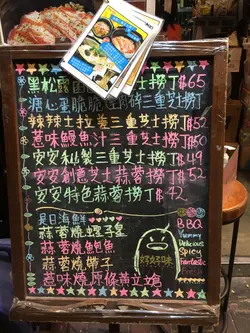 黑松露 三重芝士撈丁 $65
溏心蛋脆脆 三重芝士撈丁
辣辣土拉卷三重芝士撈丁 $52
惹味鰻魚汁三重芝士撈丁 $50
安安秘製三重芝士撈丁 $49
安安創意芝士蒜蓉撈丁 $52
安安特色蒜蓉撈丁 $42
是日海鮮
蒜蓉燒蟶子皇
蒜蓉燒魷魚
蒜蓉燒帶子
惹味燒原條黃立鯧
好好味
BBQ
Yummy
Delicious
Spicy
Fantastic